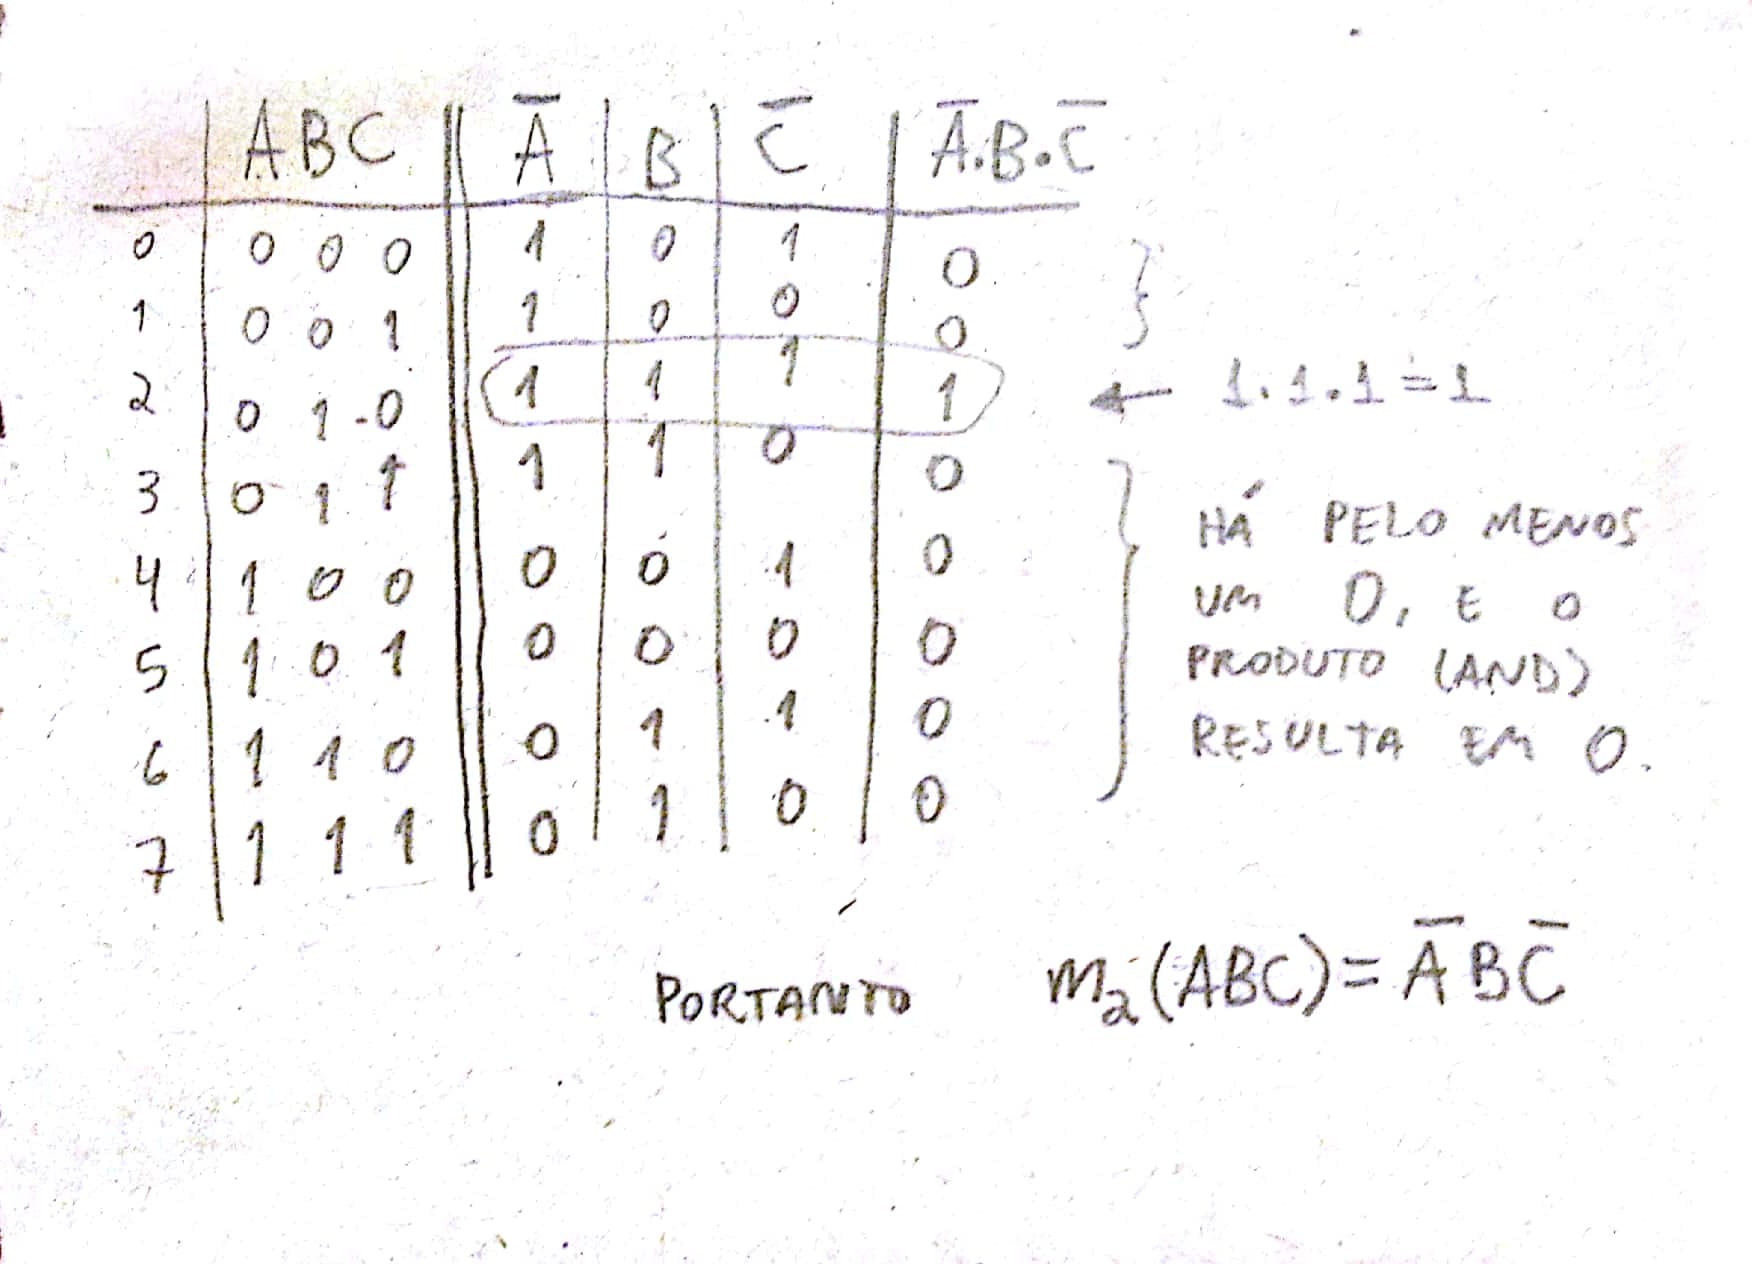 A B C Ā B C̄ Ā.B.C̄
0 0 0 0 1 0 1 0
1 0 0 1 1 0 0 0
2 0 1 0 1 1 1 1 ← 1.1.1=1
3 0 1 1 1 1 0 0
4 1 0 0 0 0 1 0
5 1 0 1 0 0 0 0
6 1 1 0 0 1 1 0
7 1 1 1 0 1 0 0
HÁ PELO MENOS
UM 0, E O
PRODUTO (AND)
RESULTA EM 0.
PORTANTO m₂(ABC)=ĀBC̄